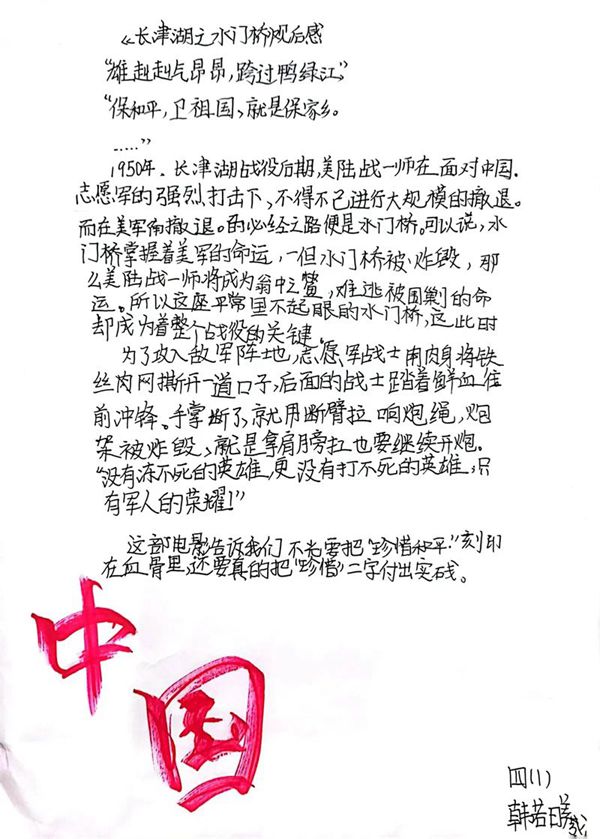 《长津湖之水门桥观后感
“雄赳赳气昂昂，跨过鸭绿江”
“保和平，卫祖国、就是保家乡。
……”
1950年，长津湖战役后期，美陆战一师在面对中国
志愿军的强烈打击下，不得不已进行大规模的撤退。
而在美军向撤退。的必经之路便是水门桥。可以说，水
门桥掌握着美军的命运，一但水门桥被炸毁，那
么美陆战一师将成为翁中之鳖，难逃被围剿的命
运。所以这座平常里不起眼的水门桥，这此时
却成为着整个战役的关键。
为了攻入敌军阵地，志愿军战士用肉身将铁
丝肉网撕开一道口子，后面的战士踏着鲜血往
前冲锋。手掌断了，就用断臂拉响炮绳，炮
架被炸毁、就是拿肩膀扛也要继续开炮。
“没有冻不死的英雄，更没有打不死的英雄，只
有军人的荣耀！”
这部电影告诉我们不光要把“珍惜和平”刻印
在血骨里，还要真的把“珍惜”二字付出实践。
中国
四(1)
韩若